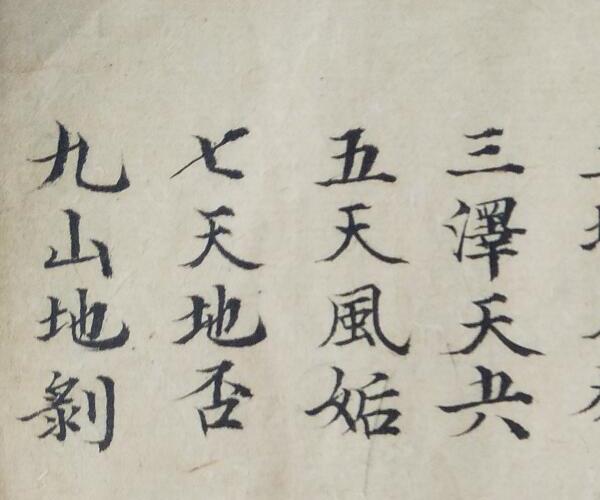 三澤天夬
五天風姤
七天地否
九山地剝